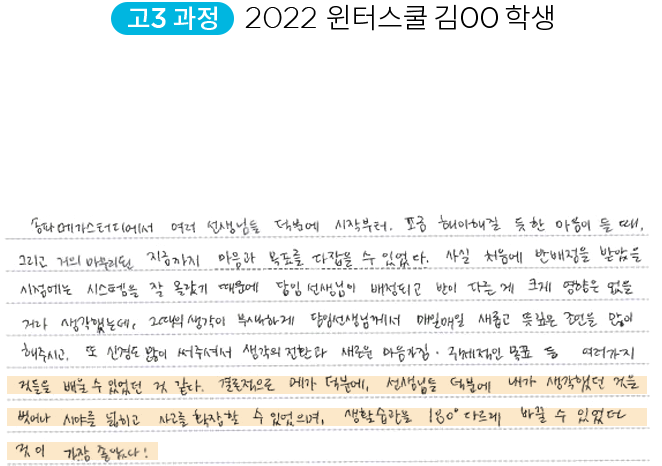 고3 과정 2022 윈터스쿨 김OO 학생
송파메가스터디에서 여러 선생님들 덕분에 시작부터, 조금 해이해질 듯한 마음이 들 때,
그리고 거의 마무리된 지금까지 마음과 목표를 다잡을 수 있었다. 사실 처음에 반배정을 받았을
시점에는 시스템을 잘 몰랐기 때문에 담임 선생님이 배정되고 반이 다른 게 크게 영향은 없을
거라 생각했는데, 그때의 생각이 무색하게 담임선생님께서 매일매일 새롭고 뜻깊은 조언을 많이
해주시고, 또 신경도 많이 써주셔서 생각의 전환과 새로운 마음가짐, 구체적인 목표 등 여러가지
것들을 배울 수 있었던 것 같다. 결론적으로 메가 덕분에, 선생님들 덕분에 내가 생각했던 것을
벗어나 시야를 넓히고 사고를 확장할 수 있었으며, 생활습관을 180° 다르게 바꿀 수 있었다
것이 가장 좋았다!